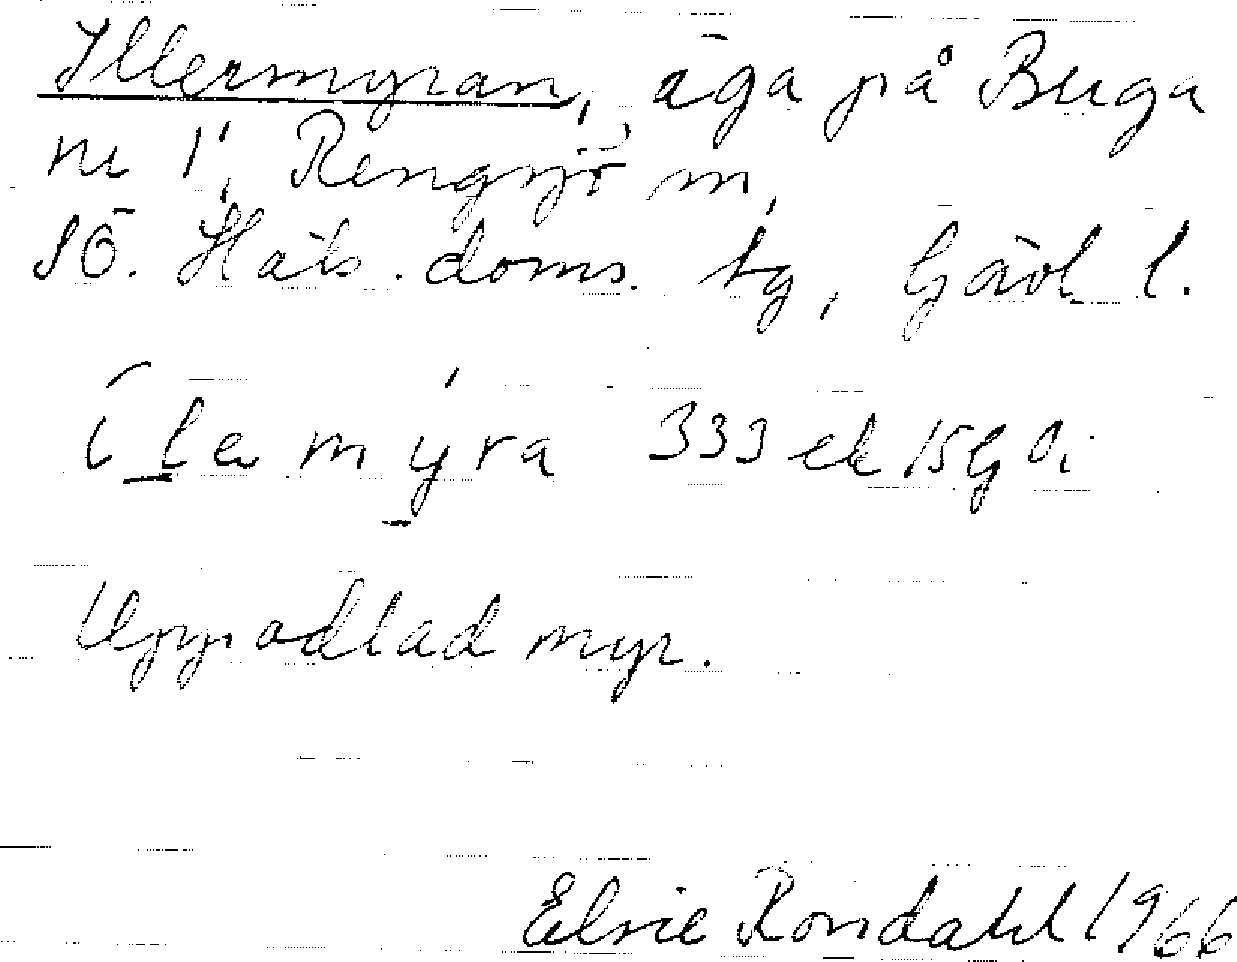 Illermyran, äga på Buga
nr 1, Rengsjö sn,
SÖ. Häls. doms. tg, Gävl. l.
ilamyra 333 ek 15G Di
Uppodlad myr.
Elsie Rondahl 1966